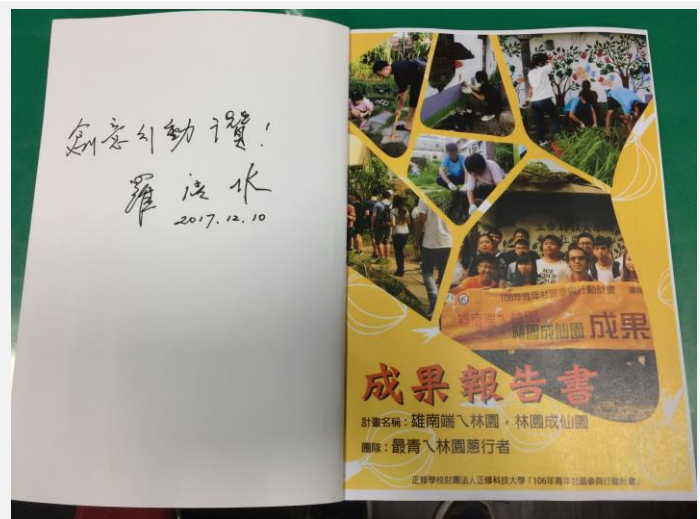 創意行動讚！
羅清水
2017.12.10
106年青年社區參與行動計畫
林園成仙園 成果
成果報告書
計畫名稱：雄南端ㄟ林園，林園成仙園
團隊：最青ㄟ林園蔥行者
正修學校財團法人正修科技大學「106年青年社區參與行動計畫」